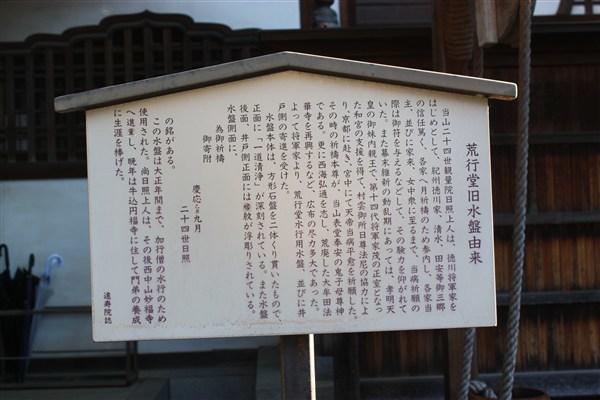 荒行堂旧水盤由来
当山二十四世観量院日照上人は、徳川将軍家を
はじめとして、紀州徳川家、清水、田安等御三卿
の信任篤く、各家へ月祈祷のため参内し、各家当
主、並びに家来、女中衆に至るまで、当病祈願の
際は御符を与えるなどして、その験力を仰がれて
いた。また幕末維新の動乱期にあっては、孝明天
皇の御妹内親王で、第十四代将軍家茂の正室となっ
た和宮の支援を得て、村雲御所日尊法尼の協力によ
り、京都に赴き、宮中にて天帝当病平癒を祈願した。
その時の祈祷本尊が、当山表堂奉安の鬼子母尊神
である。更に西海弘通を志し、荒廃した大牟田法
華寺を再興するなど、広布の尽力多大であった。
よって将軍家より、荒行堂水行用水盤、並びに井
戸側の寄進を受けた。
水盤本体は、方形石盤を二体くり貫いたもので、
正面に「一道清浄」が深刻されている。また水盤
後面、井戸側正面には紋が浮彫りされている。
水盤側面に、
為御祈祷
御寄附
慶応九月
二十四世日照
の銘がある。
この水盤は大正年間まで、加行僧の水行のため
使用された。尚日照上人は、その後西中山妙福寺
へ進董し、晩年は牛込円福寺に住して門弟の養成
に生涯を捧げた。
遠寿院誌